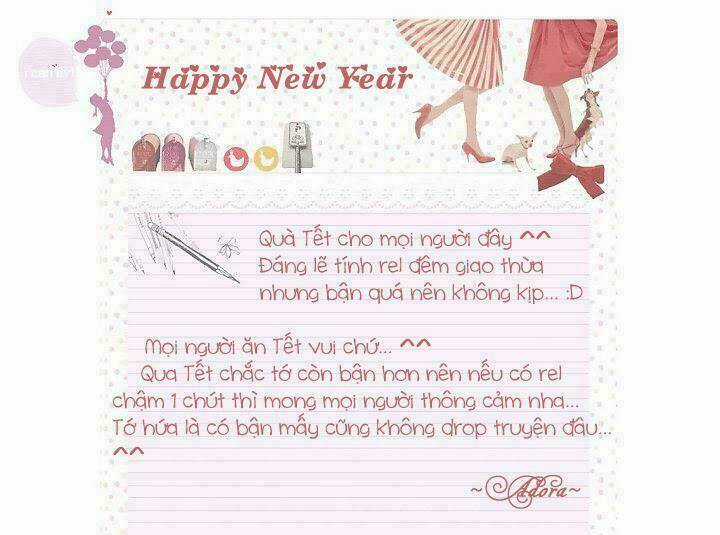 Happy New Year
Quà Tết cho mọi người đây ^^
Đáng lẽ tính rel đêm giao thừa
nhưng bận quá nên không kịp... :D
Mọi người ăn Tết vui chứ... ^^
Qua Tết chắc tớ còn bận hơn nên nếu có rel
chậm 1 chút thì mong mọi người thông cảm nha...
Tớ hứa là có bận mấy cũng không drop truyện đâu...
^^
~Adora~